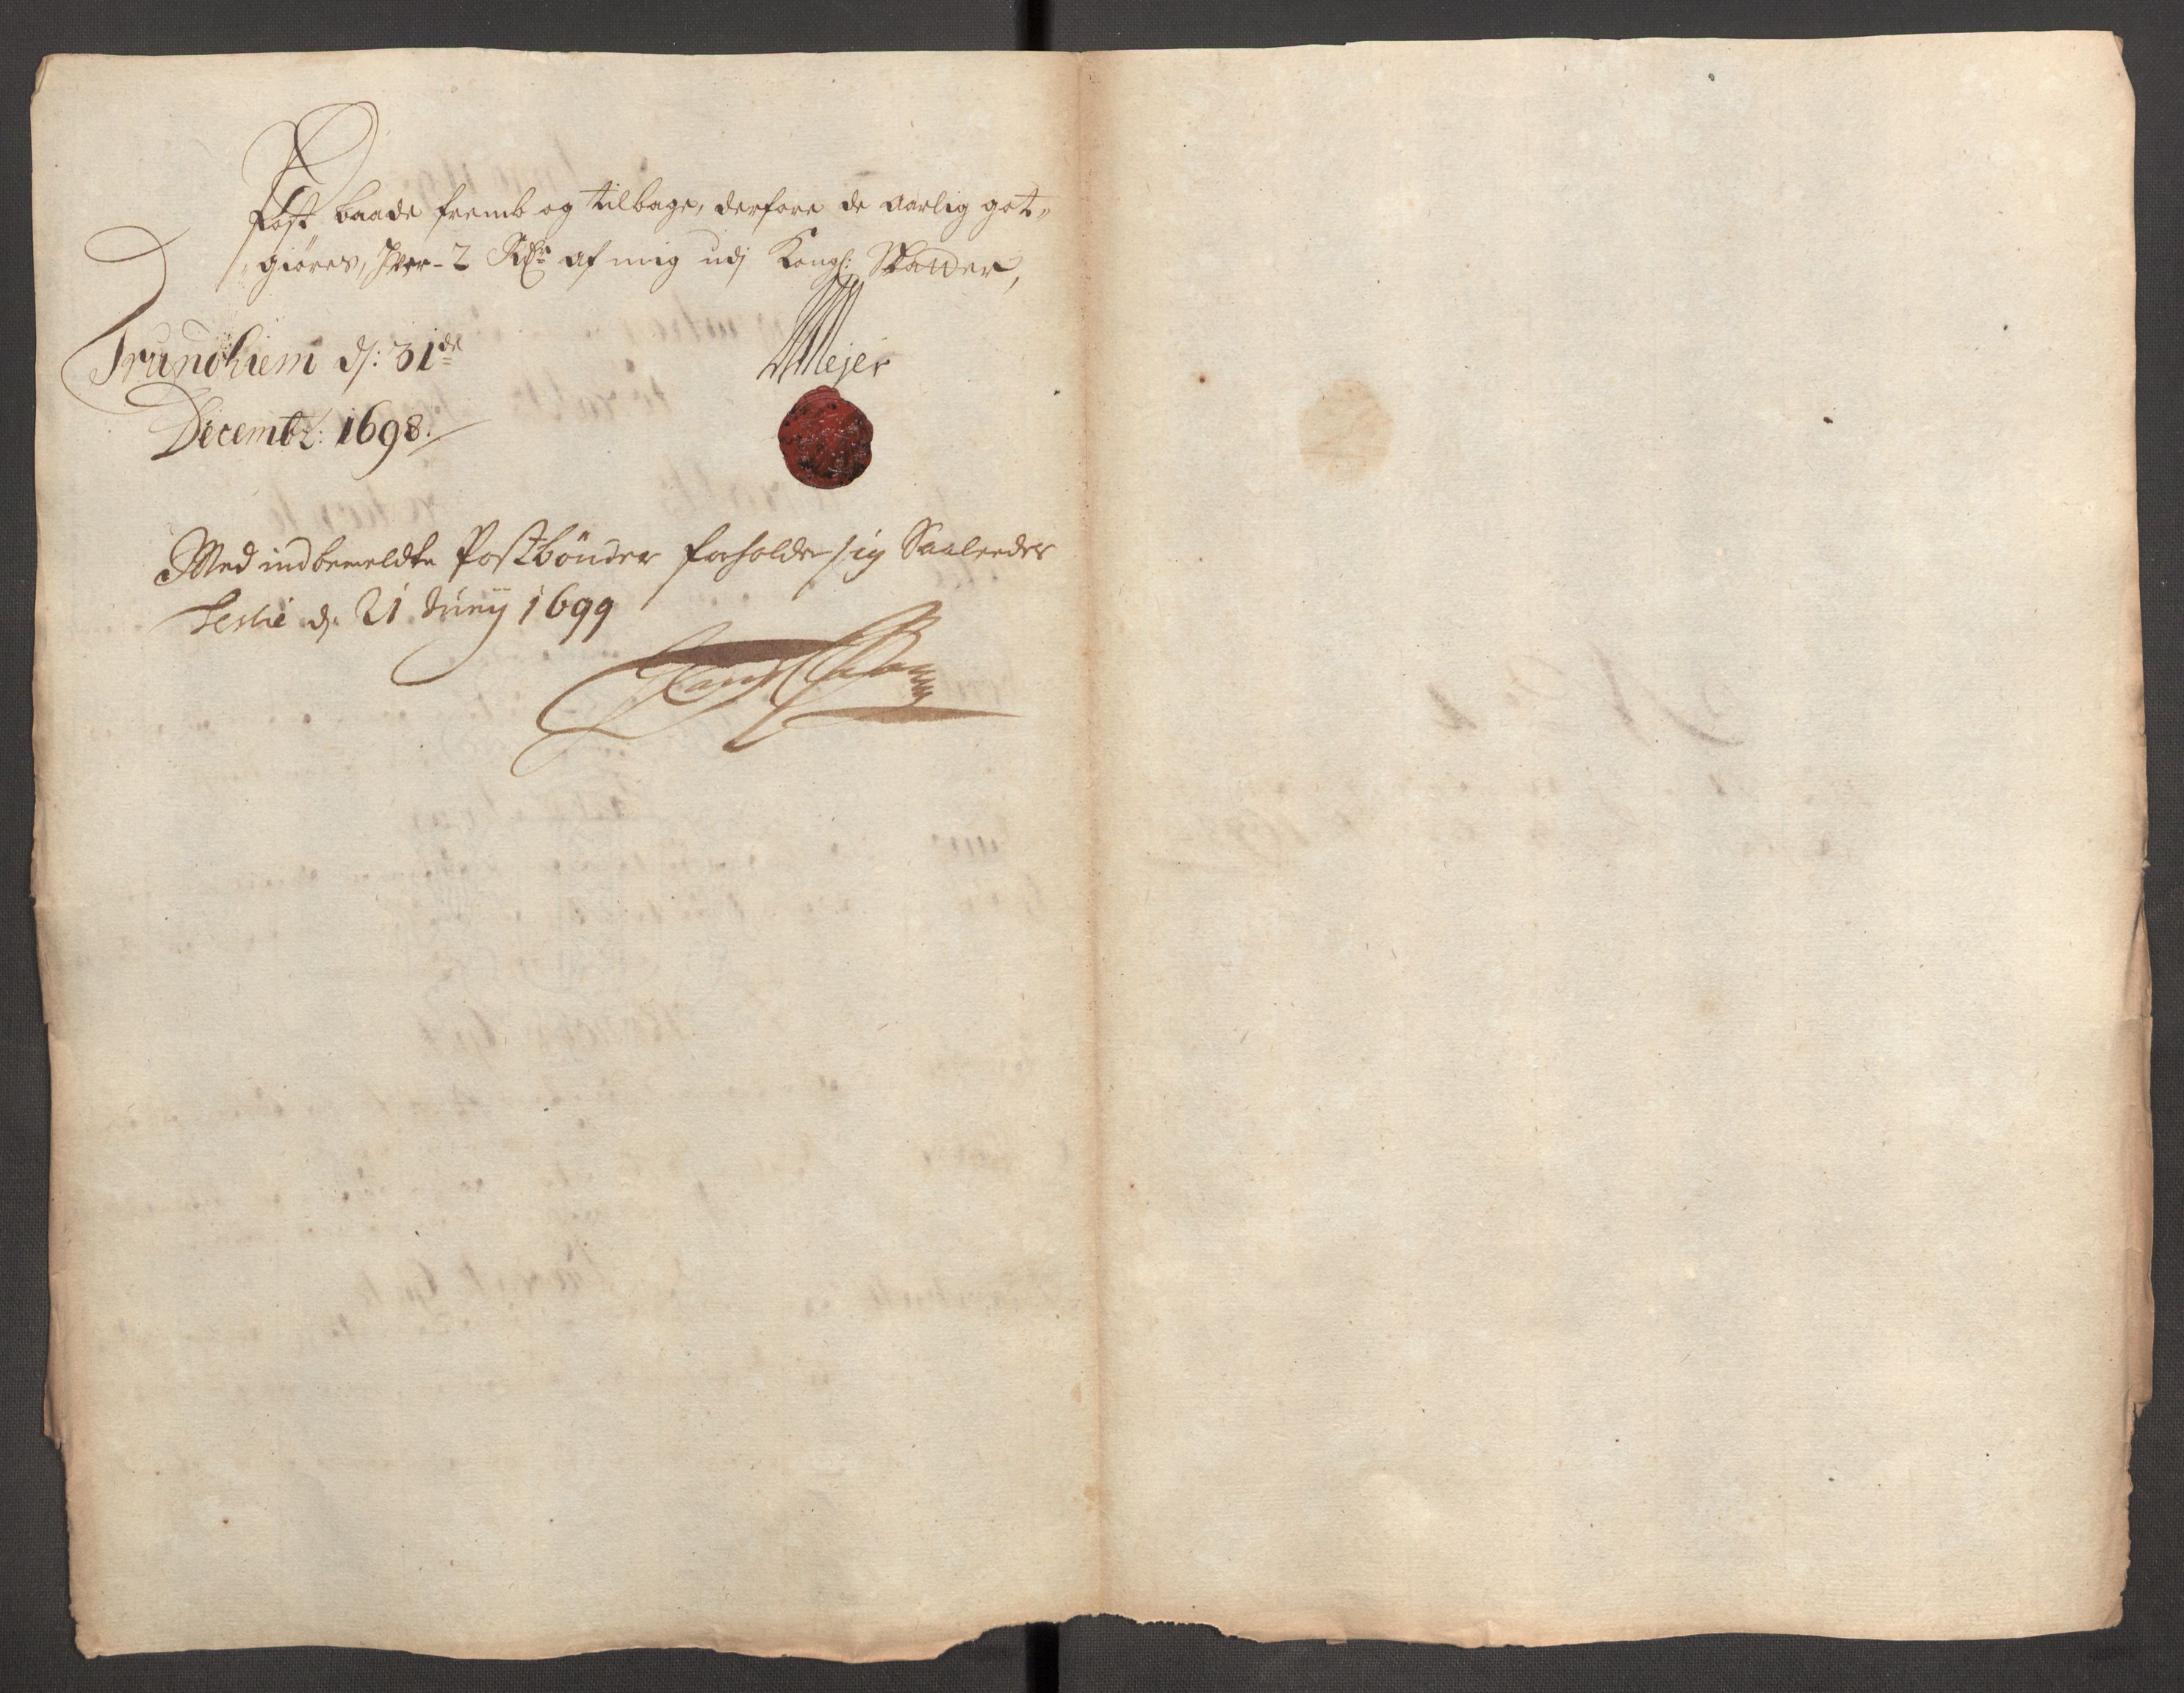 Post baade fremb og tilbage, derfore de aarlig got„
„giøres, Hver - 2 Rdr af mig udj Kongl: Skatter,
Trundhiem d: 31de
Mejer
Decembr: 1698.
Med indbemeldte Postbönder forholder sig Saaledes
d. 21 Junij 1699